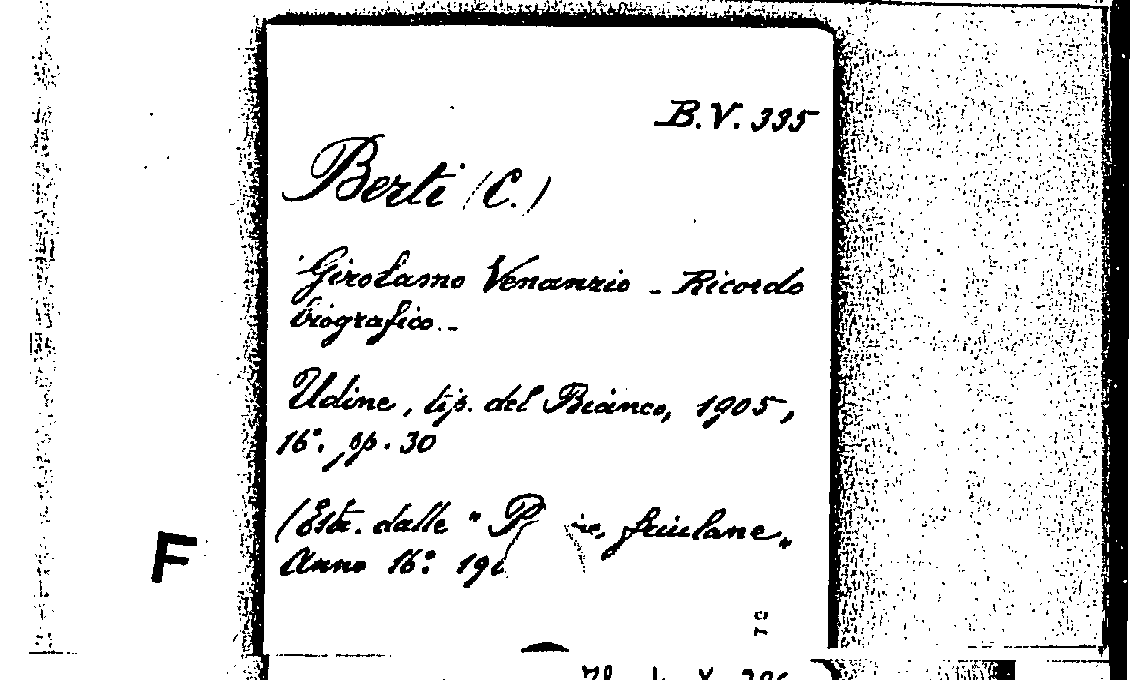 B.V. 335
Berti (C.)
Girolamo Venanzio - Ricordo
biografico. -
Udine, tip. del Bianco, 1905,
16°. pp. 30
(Estr. dalle " friulane"
Anno 16°:
F